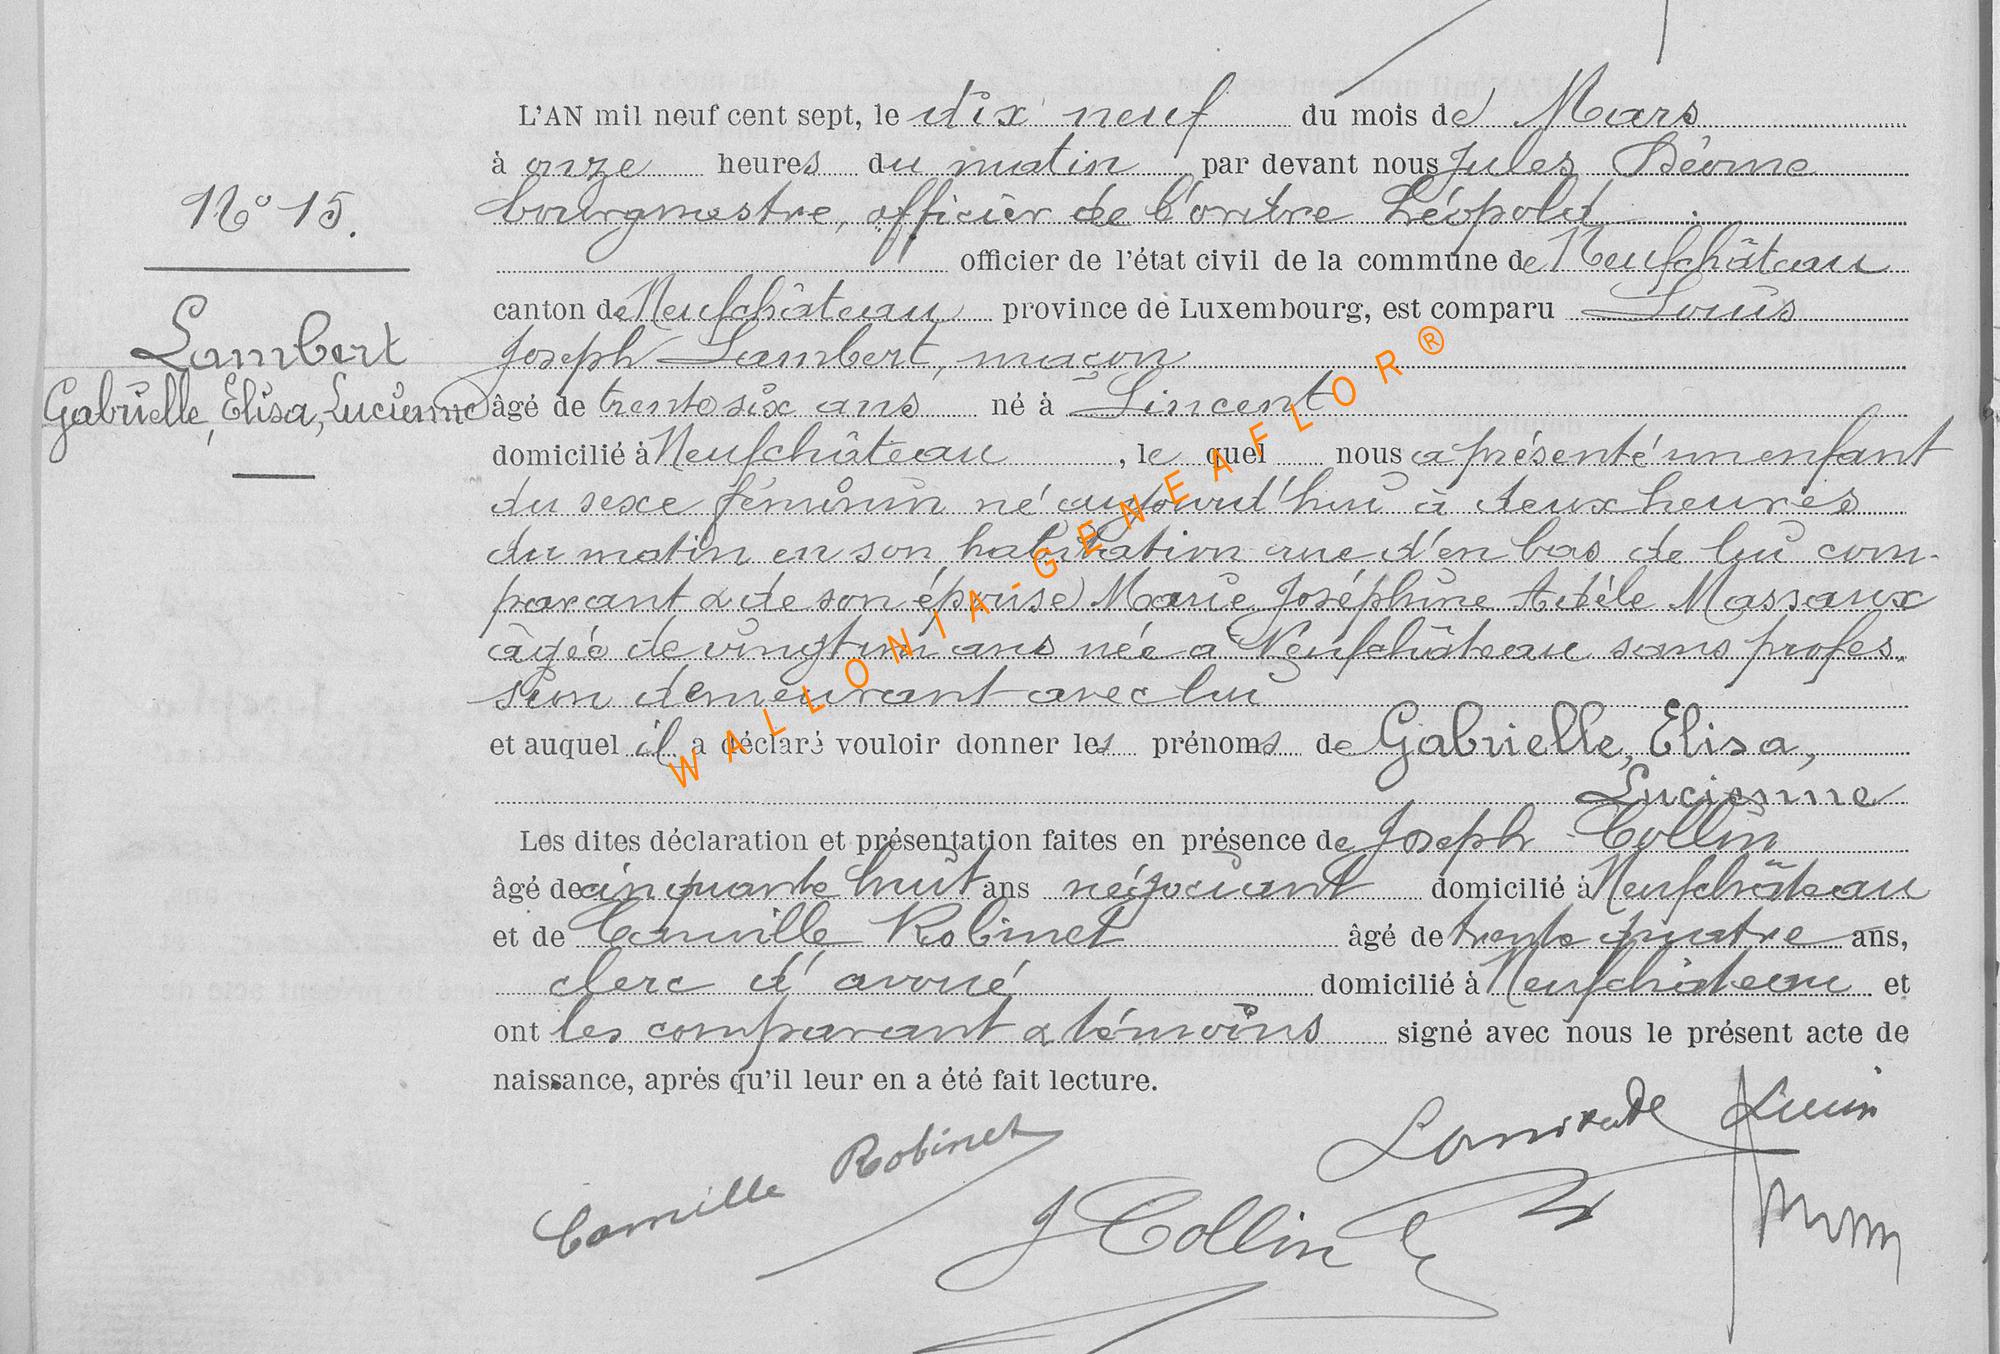 L'AN mil neuf cent sept, le dix neuf du mois de Mars
à onze heures du matin par devant nous Jules
bourgmestre, officier de l'ordre Léopold
officier de l'état civil de la commune de Neufchâteau
canton de Neufchâteau province de Luxembourg, est comparu Louis
Joseph Lambert, maçon
âgé de trente six ans né à Lincent
domicilié à Neufchâteau, le quel nous a présenté un enfant
du sexe féminin né aujourd'hui à deux heures
du matin en son habitation rue d'en bas de lui com-
parant & de son épouse Marie Joséphine Adèle Massaux
âgée de vingt un ans née a Neufchâteau sans profes
sion demeurant avec lui
et auquel il a déclaré vouloir donner les prénoms de Gabrielle, Elisa,
Lucienne
Les dites déclaration et présentation faites en présence de Joseph Collin
âgé de cinquante huit ans négociant domicilié à Neufchâteau
et de Camille Robinet âgé de trente quatre ans,
clerc d'avoué domicilié à Neufchâteau et
ont les comparant & témoins signé avec nous le présent acte de
naissance, après qu'il leur en a été fait lecture.
No 15.
Lambert
Gabrielle, Elisa, Lucienne
Camille Robinet
J Collin
WALLONIA-GENEAFLOR®